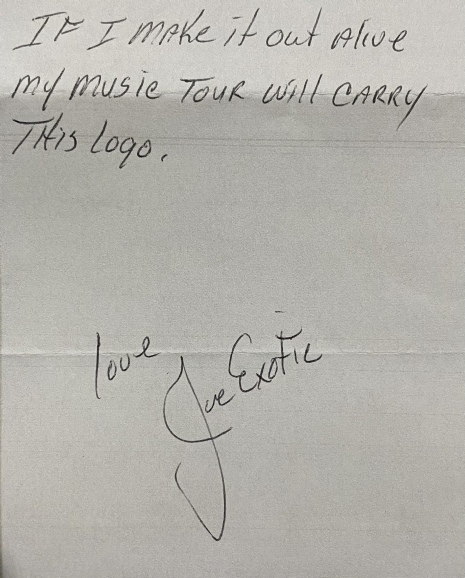 IF I make it out Alive
my music TOUR will CARRY
THis Logo.
love
Joe Exotic